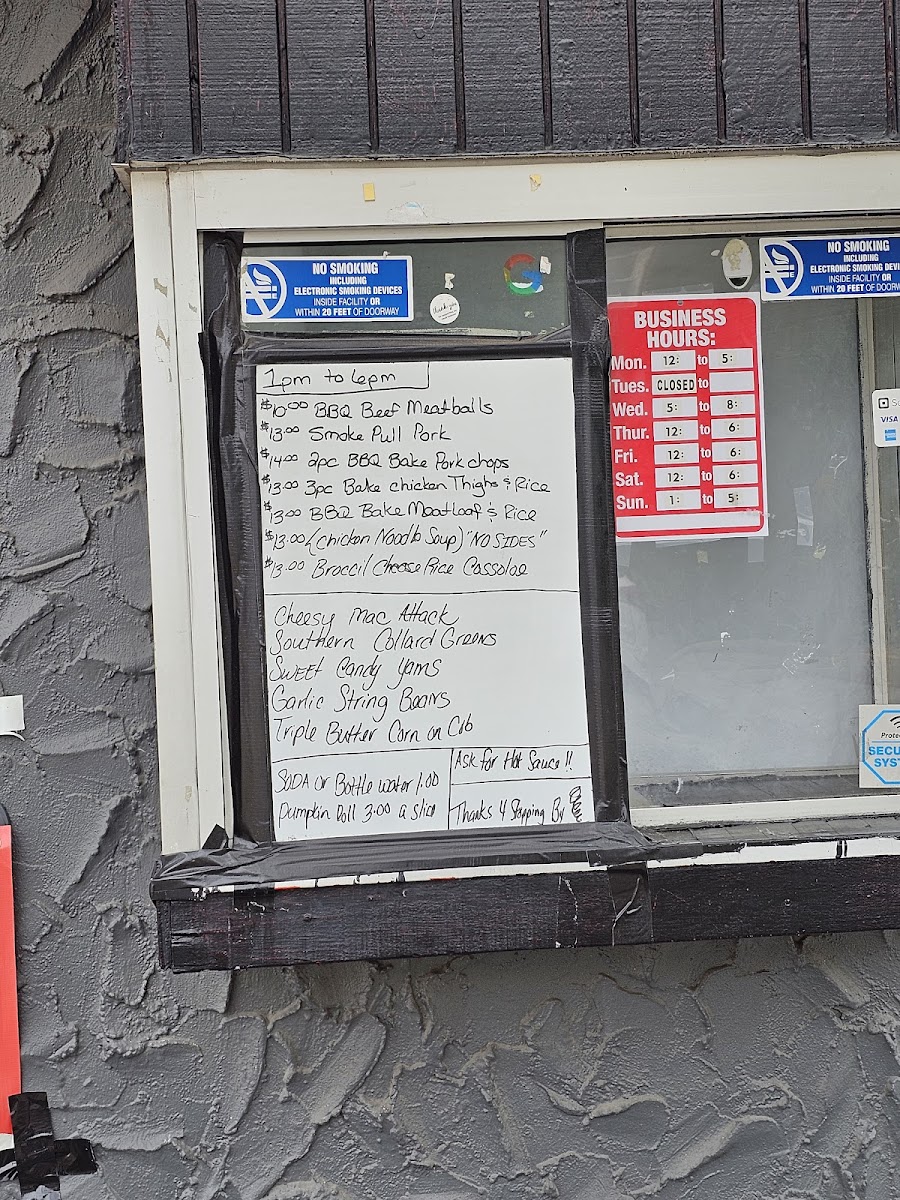 NO SMOKING
INCLUDING
ELECTRONIC SMOKING DEVICES
INSIDE FACILITY OR
WITHIN 20 FEET OF DOORWAY
1pm to 6pm
$10.00 BBQ Beef Meatballs
$13.00 Smoke Pull Pork
$14.00 2pc BBQ Bake Pork chops
$13.00 3pc Bake chicken Thighs & Rice
$13.00 BBQ Bake Meatloaf & Rice
$13.00 (chicken Noodle Soup) "NO SIDES"
$13.00 Broccil Cheese Rice Cassoloe
Cheesy Mac Attack
Southern Collard Greens
Sweet Candy Yams
Garlic String Beans
Triple Butter Corn on Cob
SODA or Bottle water 1.00
Pumpkin Roll 3.00 a slice
Ask for Hot Sauce !!
Thanks 4 Stopping By
BUSINESS
HOURS:
Mon. 12: to 5:
Tues. CLOSED to
Wed. 5: to 8:
Thur. 12: to 6:
Fri. 12: to 6:
Sat. 12: to 6:
Sun. 1: to 5:
NO SMOKING
INCLUDING
ELECTRONIC SMOKING DEVICES
INSIDE FACILITY OR
WITHIN 20 FEET OF DOORW
VISA
Prote
SECU
SYST